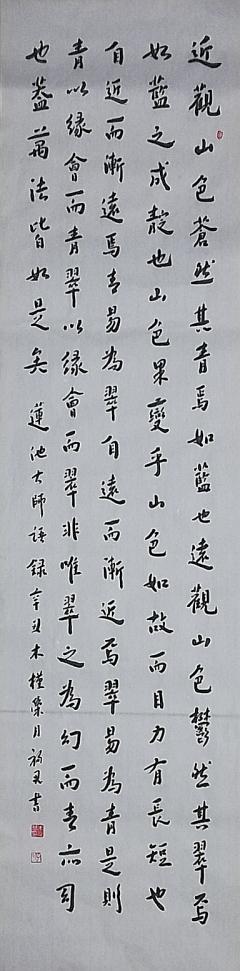 近觀山色蒼然其青焉如藍也遠觀山色鬱然其翠焉
如藍之成靛也山色果變乎山色如故而目力有長短也
自近而漸遠焉青易為翠自遠而漸近焉翠易為青是則
青以緣會而青翠以緣會而翠非唯翠之為幻而青亦幻
也蓋萬法皆如是矣 蓮池大師語錄 辛丑木槿榮月 書